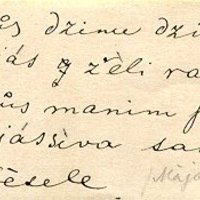 us dzimu dzi
jás z zēli ra
ūs manim
jássiva sa
ēsele